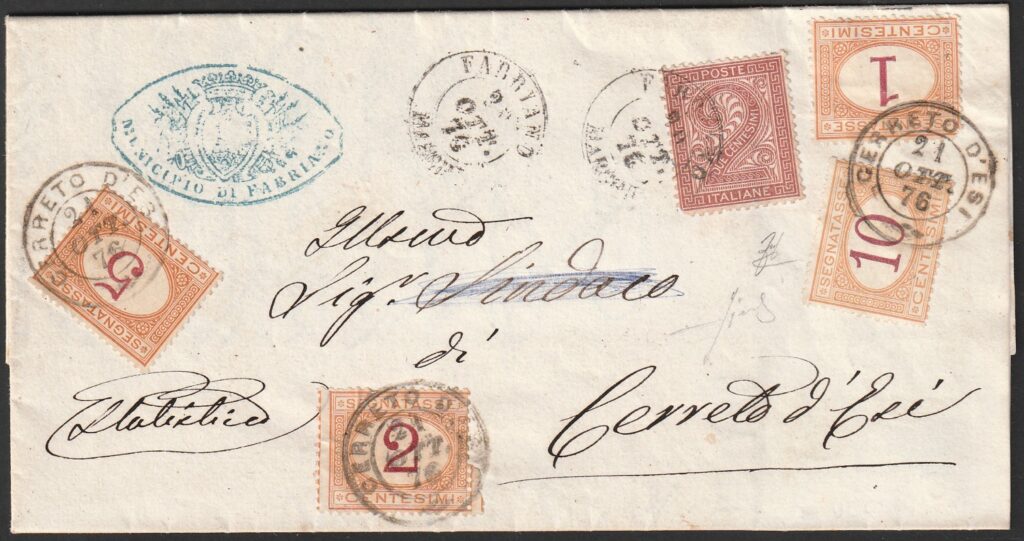 MUNICIPIO DI FABRIANO
FABRIANO
OTT.
76
POSTE
2
CENTESIMI
ITALIANE
OTT.
76
CENTESIMI
1
CERRETO D'ESI
21
OTT.
76
SEGNATASSE
10
CENTESIMI
CERRETO D'ESI
21
OTT.
76
CENTESIMI
5
SEGNATASSE
Illsmo
Sigr Sindaco
di
Cerreto d'Esi
Statistica
SEGNATASSE
2
CENTESIMI
CERRETO D'ESI
OTT.
76